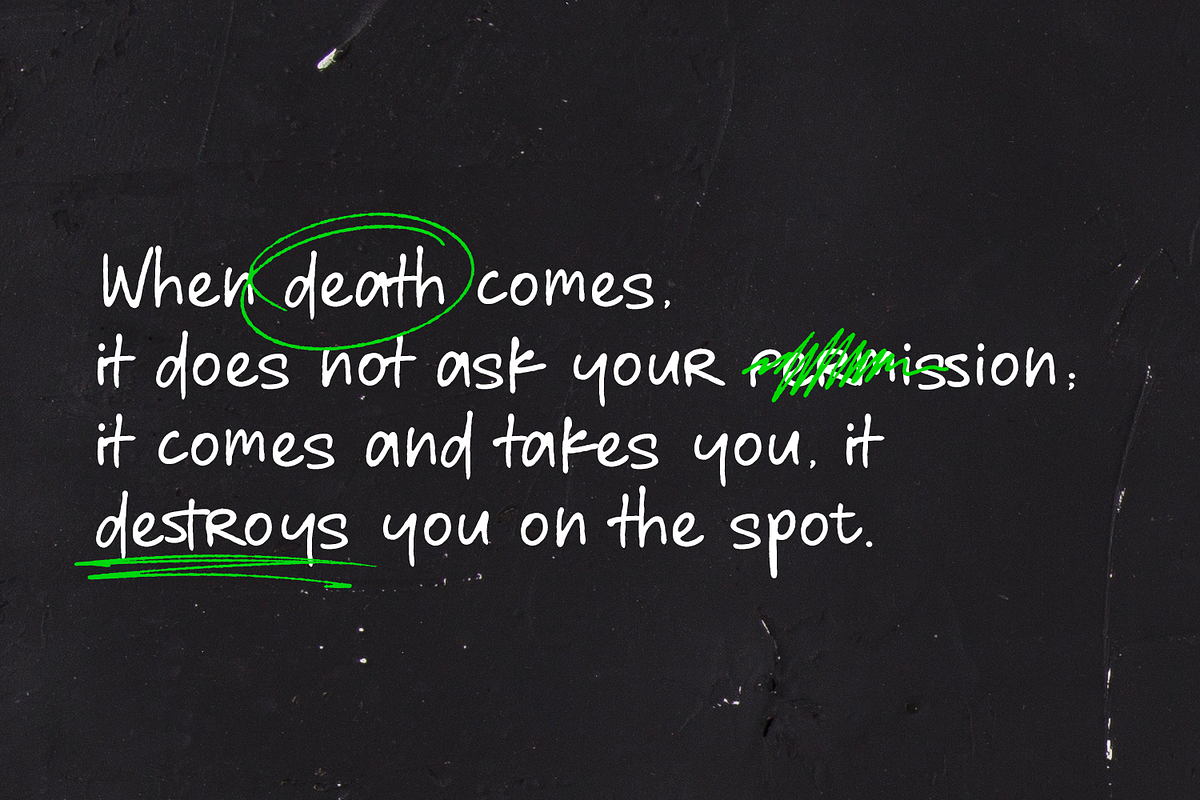 When death comes,
it does not ask your permission;
it comes and takes you, it
destroys you on the spot.